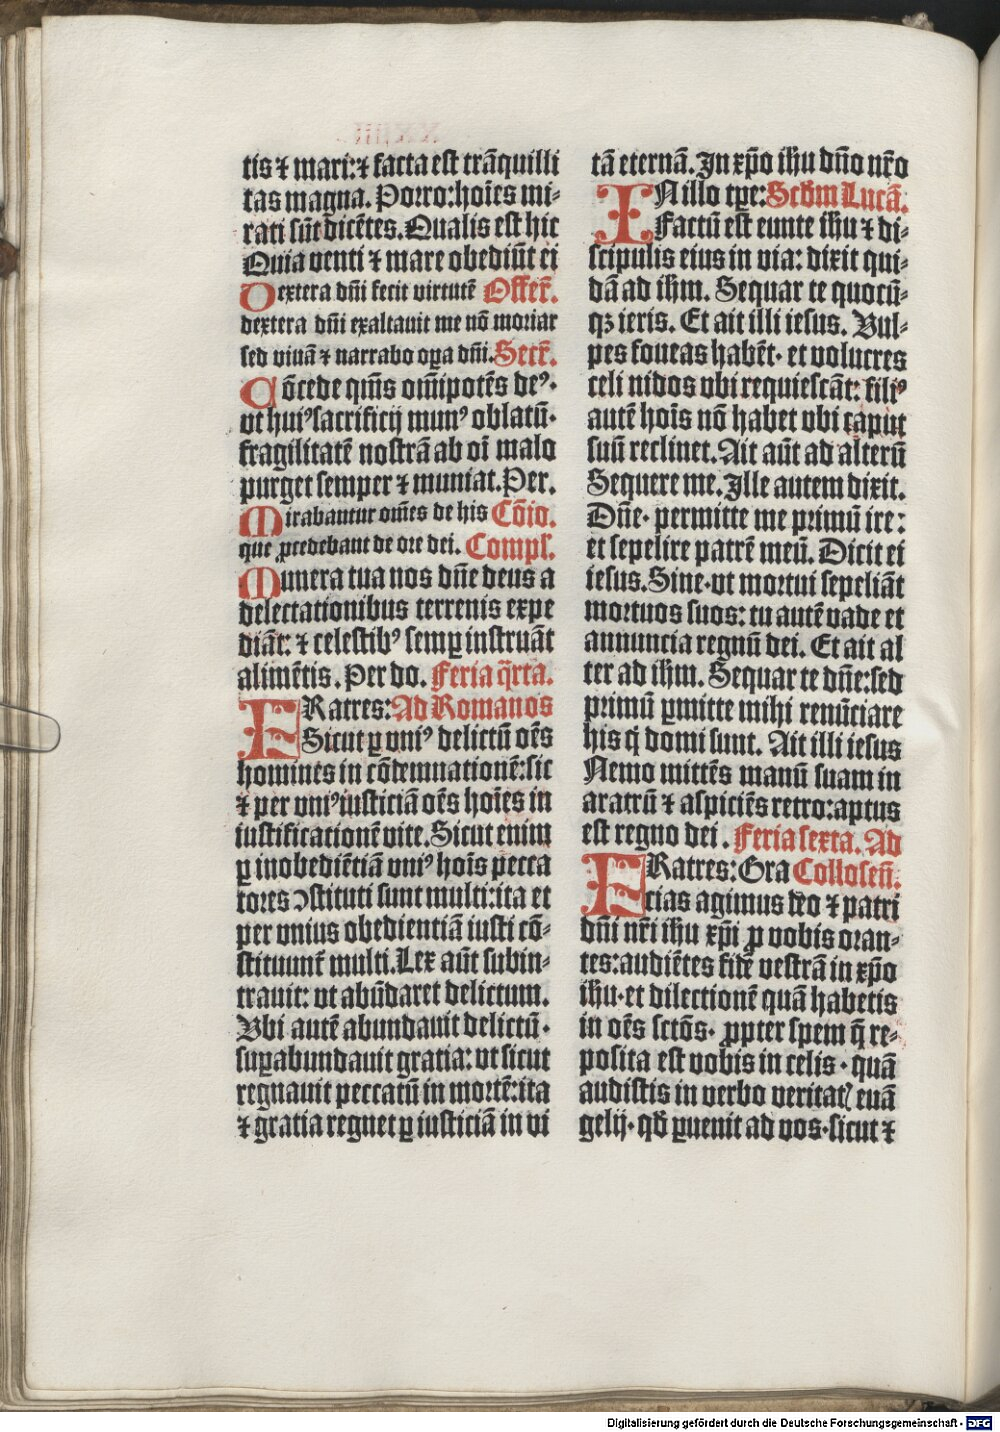 tis ⁊ mari:⁊ facta est trāquilli
tas magna. Porro:hoīes mi-
rati sūt dicētes. Qualis est hic
Quia venti ⁊ mare obediūt ei
Dextera dñi fecit virtutē Offer̄.
dextera dñi exaltauit me nō moriar
sed viuā ⁊ narrabo oꝑa dñi. Secr̄.
Cōcede qm̄s om̄ipotēs deꝰ.
vt huiꝰ sacrificij munꝰ oblatū.
fragilitatē nostrā ab oī malo
purget semper ⁊ muniat. Per.
Mirabantur om̄es de his Cōio.
que ꝓcedebant de ore dei. Compl.
Munera tua nos dn̄e deus a
delectationibus terrenis expe
diāt: ⁊ celestibꝰ semꝑ instruāt
alimētis. Per do. Feria q̄rta.
FRatres: Ad Romanos
Sicut ꝑ vniꝰ delictū oēs
homines in cōdemnationē:sic
⁊ per vniꝰ iusticiā oēs hoīes in
iustificationē vite. Sicut enim
ꝑ inobediētiā vniꝰ hoīs pecca
tores ↄstituti sunt multi:ita et
per vnius obedientiā iusti cō-
stituunt̄ multi. Lex aūt subin-
trauit: vt abūdaret delictum.
Vbi autē abundauit delictū.
suꝑabundauit gratia: vt sicut
regnauit peccatū in mortē:ita
⁊ gratia regnet ꝑ iusticiā in vi
tā eternā. In xp̄o ihu dn̄o nr̄o
INillo tꝑe: Scd̄m Lucā.
Factū est eunte ihu ⁊ di-
scipulis eius in via: dixit qui-
dā ad ihm. Sequar te quocū-
qꝫ ieris. Et ait illi iesus. Vul-
pes foueas habēt. et volucres
celi nidos vbi requiescāt: filiꝰ
autē hoīs nō habet vbi caput
suū reclinet. Ait aūt ad alterū
Sequere me. Ille autem dixit.
Dn̄e. permitte me primū ire:
et sepelire patrē meū. Dicit ei
iesus. Sine. vt mortui sepeliāt
mortuos suos: tu autē vade et
annuncia regnū dei. Et ait al
ter ad ihm. Sequar te dn̄e:sed
primū ꝑmitte mihi renūciare
his q̄ domi sunt. Ait illi iesus
Nemo mittēs manū suam in
aratrū ⁊ aspiciēs retro:aptus
est regno dei. Feria sexta. Ad
FRatres: Gra Collosen̄.
cias agimus deo ⁊ patri
dñi nr̄i ihu xp̄i ꝓ vobis oran-
tes:audiētes fidē vestrā in xp̄o
ihu. et dilectionē quā habetis
in oēs sctōs. ꝓpter spem q̄ re-
posita est vobis in celis. quā
audistis in verbo veritatꝭ euā
gelij. qd̄ ꝑuenit ad vos. sicut ⁊
Digitalisierung gefördert durch die Deutsche Forschungsgemeinschaft - DFG